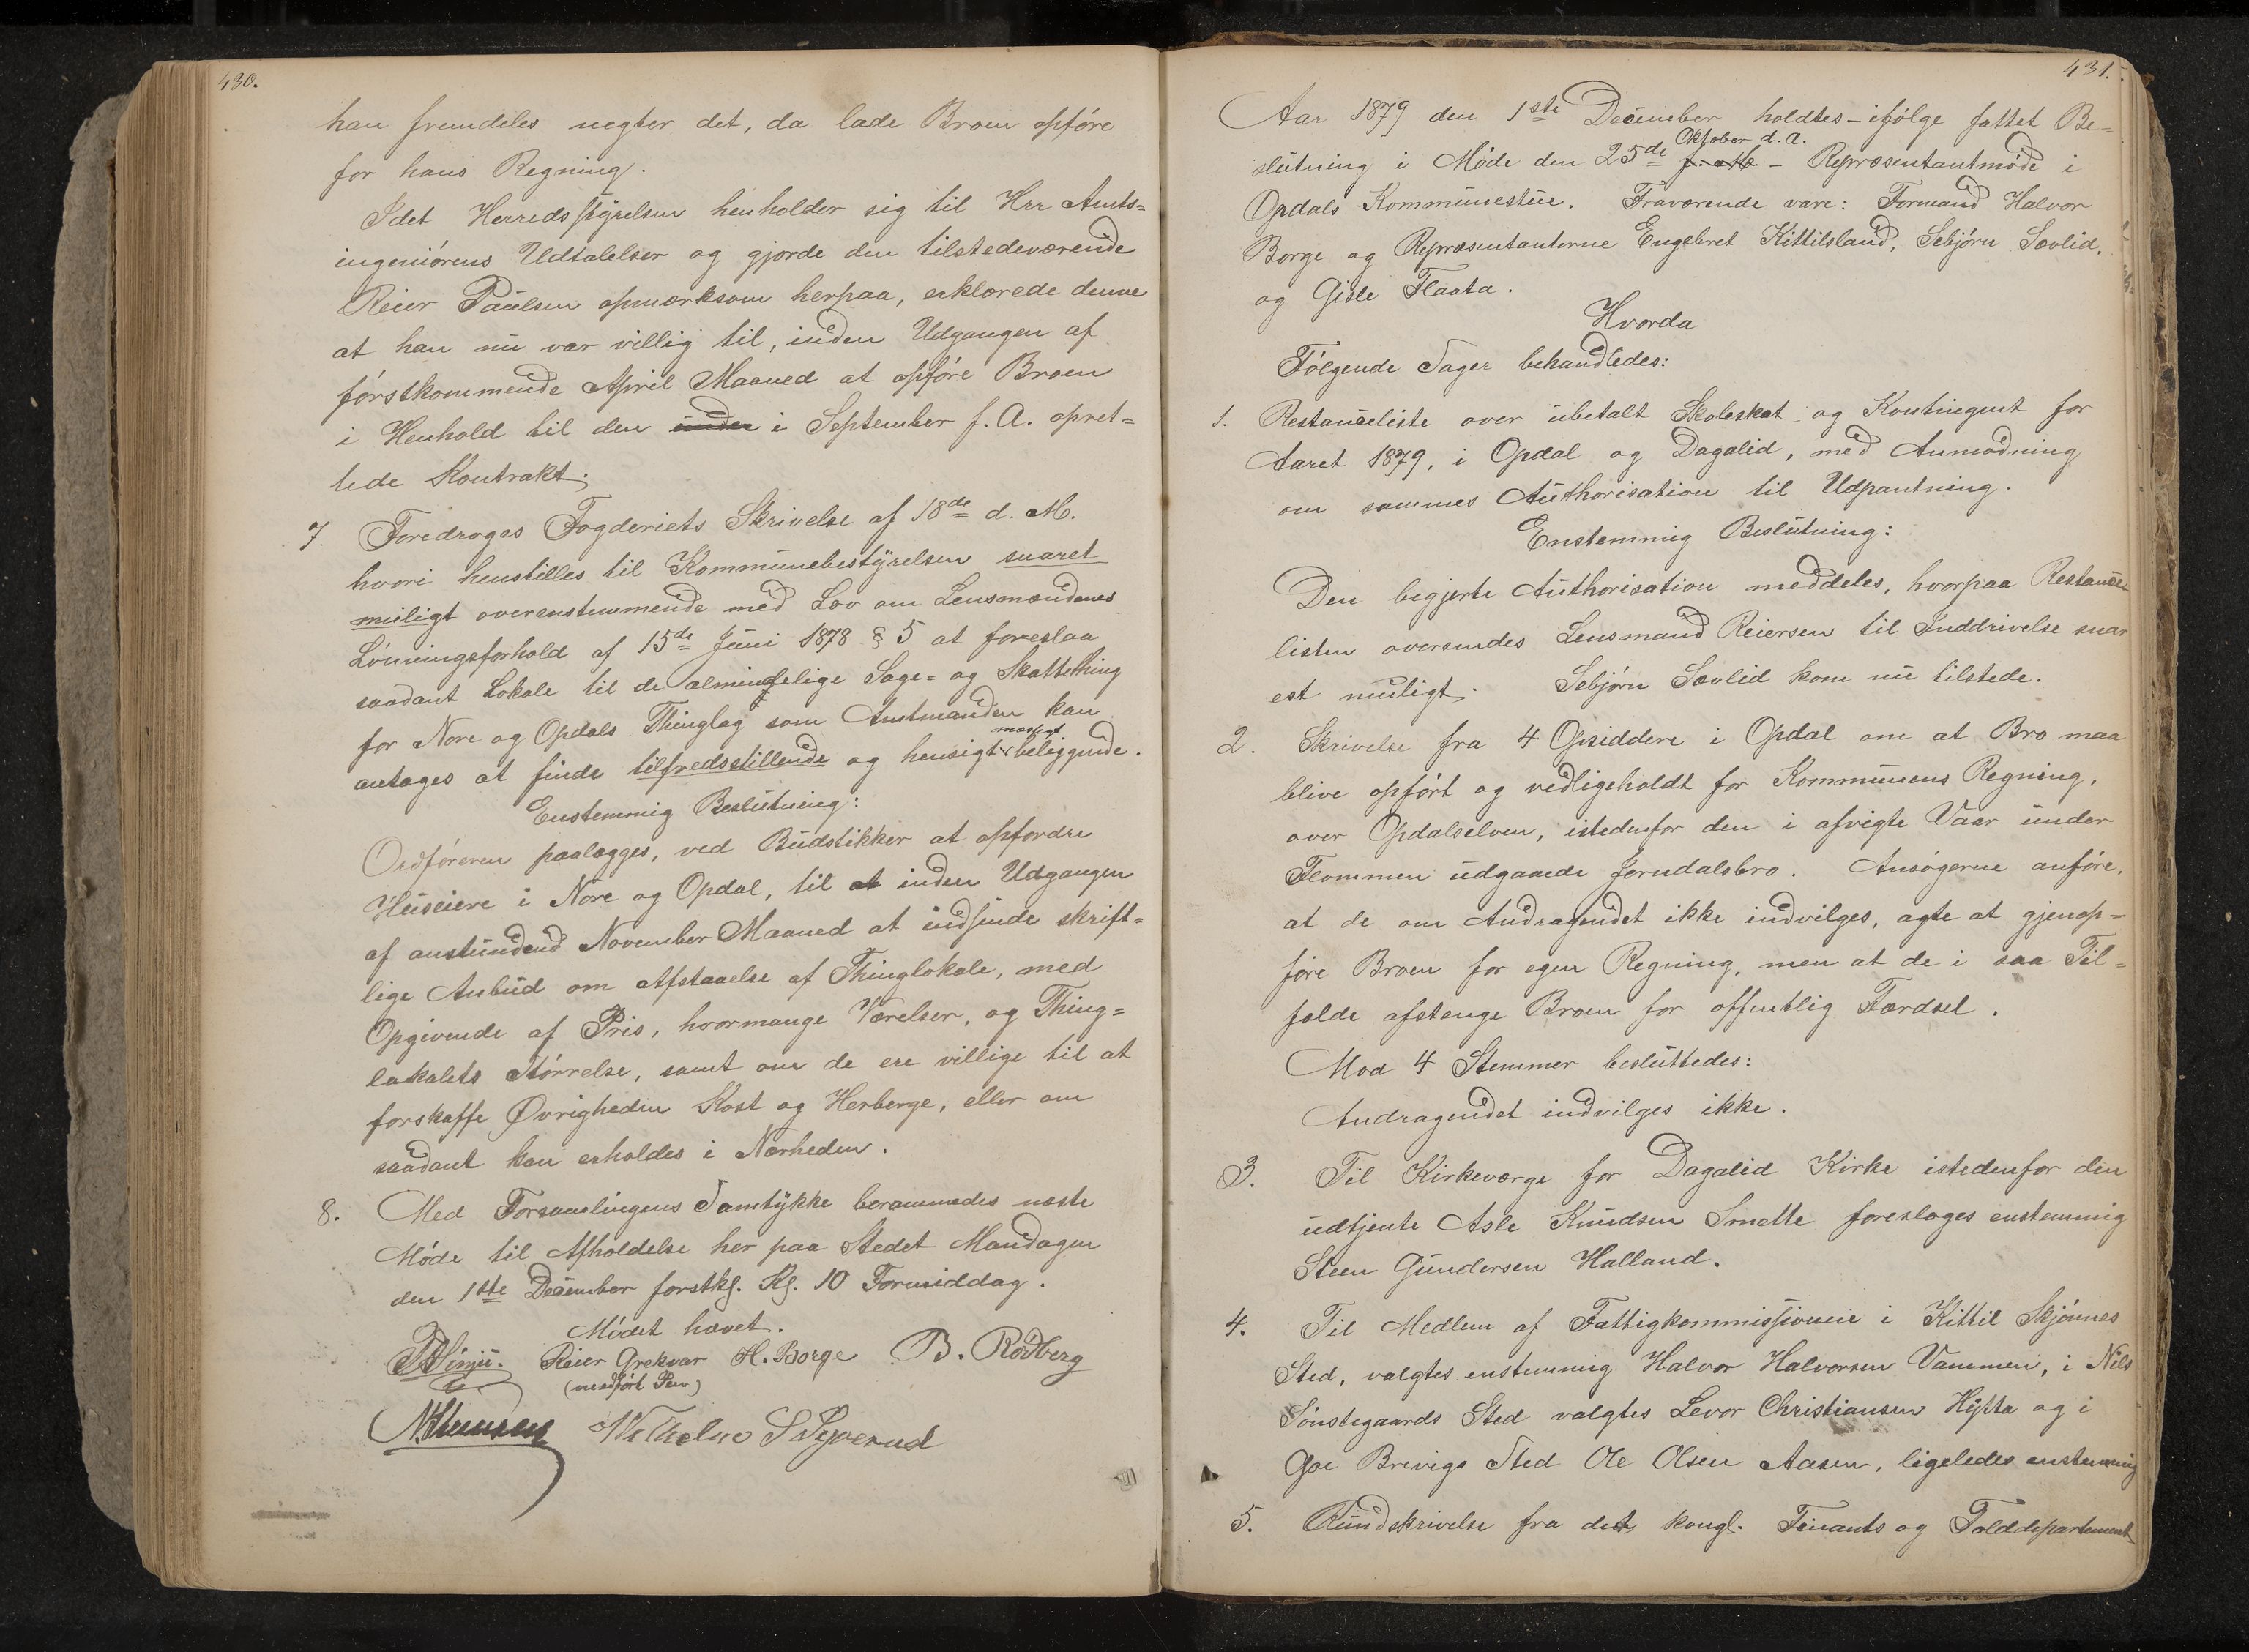 430.
han fremdeles negter det, da lade Broen opføre
for hans Regning.
Idet Herredsstyrelsen henholder sig til Hrr Amts=
ingeniørens Udtalelser og gjorde den tilstedeværende
Reier Paulsen opmærksom herpaa, erklærede denne
at han nu var villig til, inden Udgangen af
førstkommende April Maaned at opføre Broen
i Henhold til den under i September f. A. opret=
tede Kontrakt.
7. Foredroges Fogderiets Skrivelse af 18de d. M.
hvori henstilles til Kommunebestyrelsen snaret
muligt overenstemmende med Lov om Lensmændenes
Lønningsforhold af 15de Juni 1878 § 5 at foreslaa
saadant Lokale til de almindelige Sage= og Skattething
for Nore og Opdals Thinglag som Amtmanden kan
antages at finde tilfredsstillende og hensigtsmæssigt beliggende.
Enstemmig Beslutning:
Ordføreren paalægges, ved Budstikker at opfordre
Huseiere i Nore og Opdal, til at inden Udgangen
af anstundend November Maaned at indsende skrift=
lige Anbud om Afstaaelse af Thinglokale, med
Opgivende af Pris, hvormange Værelser, og Thing=
lokalets Størrelse, samt om de ere villige til at
forskaffe Øvrigheden Kost og Herberge, eller om
saadant kan erholdes i Nærheden.
8. Med Forsamlingens Samtykke berammedes næste
Møde til Afholdelse her paa Stedet Mandagen
den 1ste December førstkg. Kl. 10 Formiddag.
Mødet hævet.
Reier Grekvar H. Borge B. Rødberg
(medført Pen)
431.
Aar 1879 den 1ste December holdtes - ifølge fattet Be=
Oktober d. A.
slutning i Møde den 25de f. M. - Repræsentantmøde i
Opdals Kommunestue. Fraværende vare: Formand Halvor
Borge og Repræsentanterne Engebret Kittilsland, Sebjørn Søvlid,
og Gisle Flaata.
Hvorda
Følgende Sager behandledes:
1. Restanceliste over ubetalt Skoleskat og Kontingent for
Aaret 1879, i Opdal og Dagalid, med Anmodning
om sammes Authorisation til Udpantning.
Enstemmig Beslutning:
Den begjerte Authorisation meddeles, hvorpaa Restance
listen oversendes Lensmand Reiersen til Inddrivelse snar
est muligt. Sebjørn Søvlid kom nu tilstede.
2. Skrivelse fra 4 Opsiddere i Opdal om at Bro maa
blive opført og vedligeholdt for Kommunens Regning,
over Opdalselven, istedenfor den i afvigte Vaar under
Flommen udgaaede Jerndalsbro. Ansøgerne anføre,
at de om Andragendet ikke indvilges, agte at gjenop=
føre Broen for egen Regning, men at de i saa Til=
fælde afstenge Broen for offentlig Færdsel.
Mod 4 Stemmer besluttedes:
Andragendet indvilges ikke.
3. Til Kirkeværge for Dagalid Kirke istedenfor den
udtjente Asle Knudsen Smette foreslages enstemmig
Steen Gundersen Halland.
4. Til Medlem af Fattigkommissionen i Kittil Skjønnes
Sted, valgtes enstemmig Halvor Halvorsen Vammen, i Nils
Sønstegaards Sted valgtes Levor Christiansen Hytta og i
Goe Brevigs Sted Ole Olsen Aasen, ligeledes enstemmig
5. Rundskrivelse fra det kongl. Finants og Tolddepartement